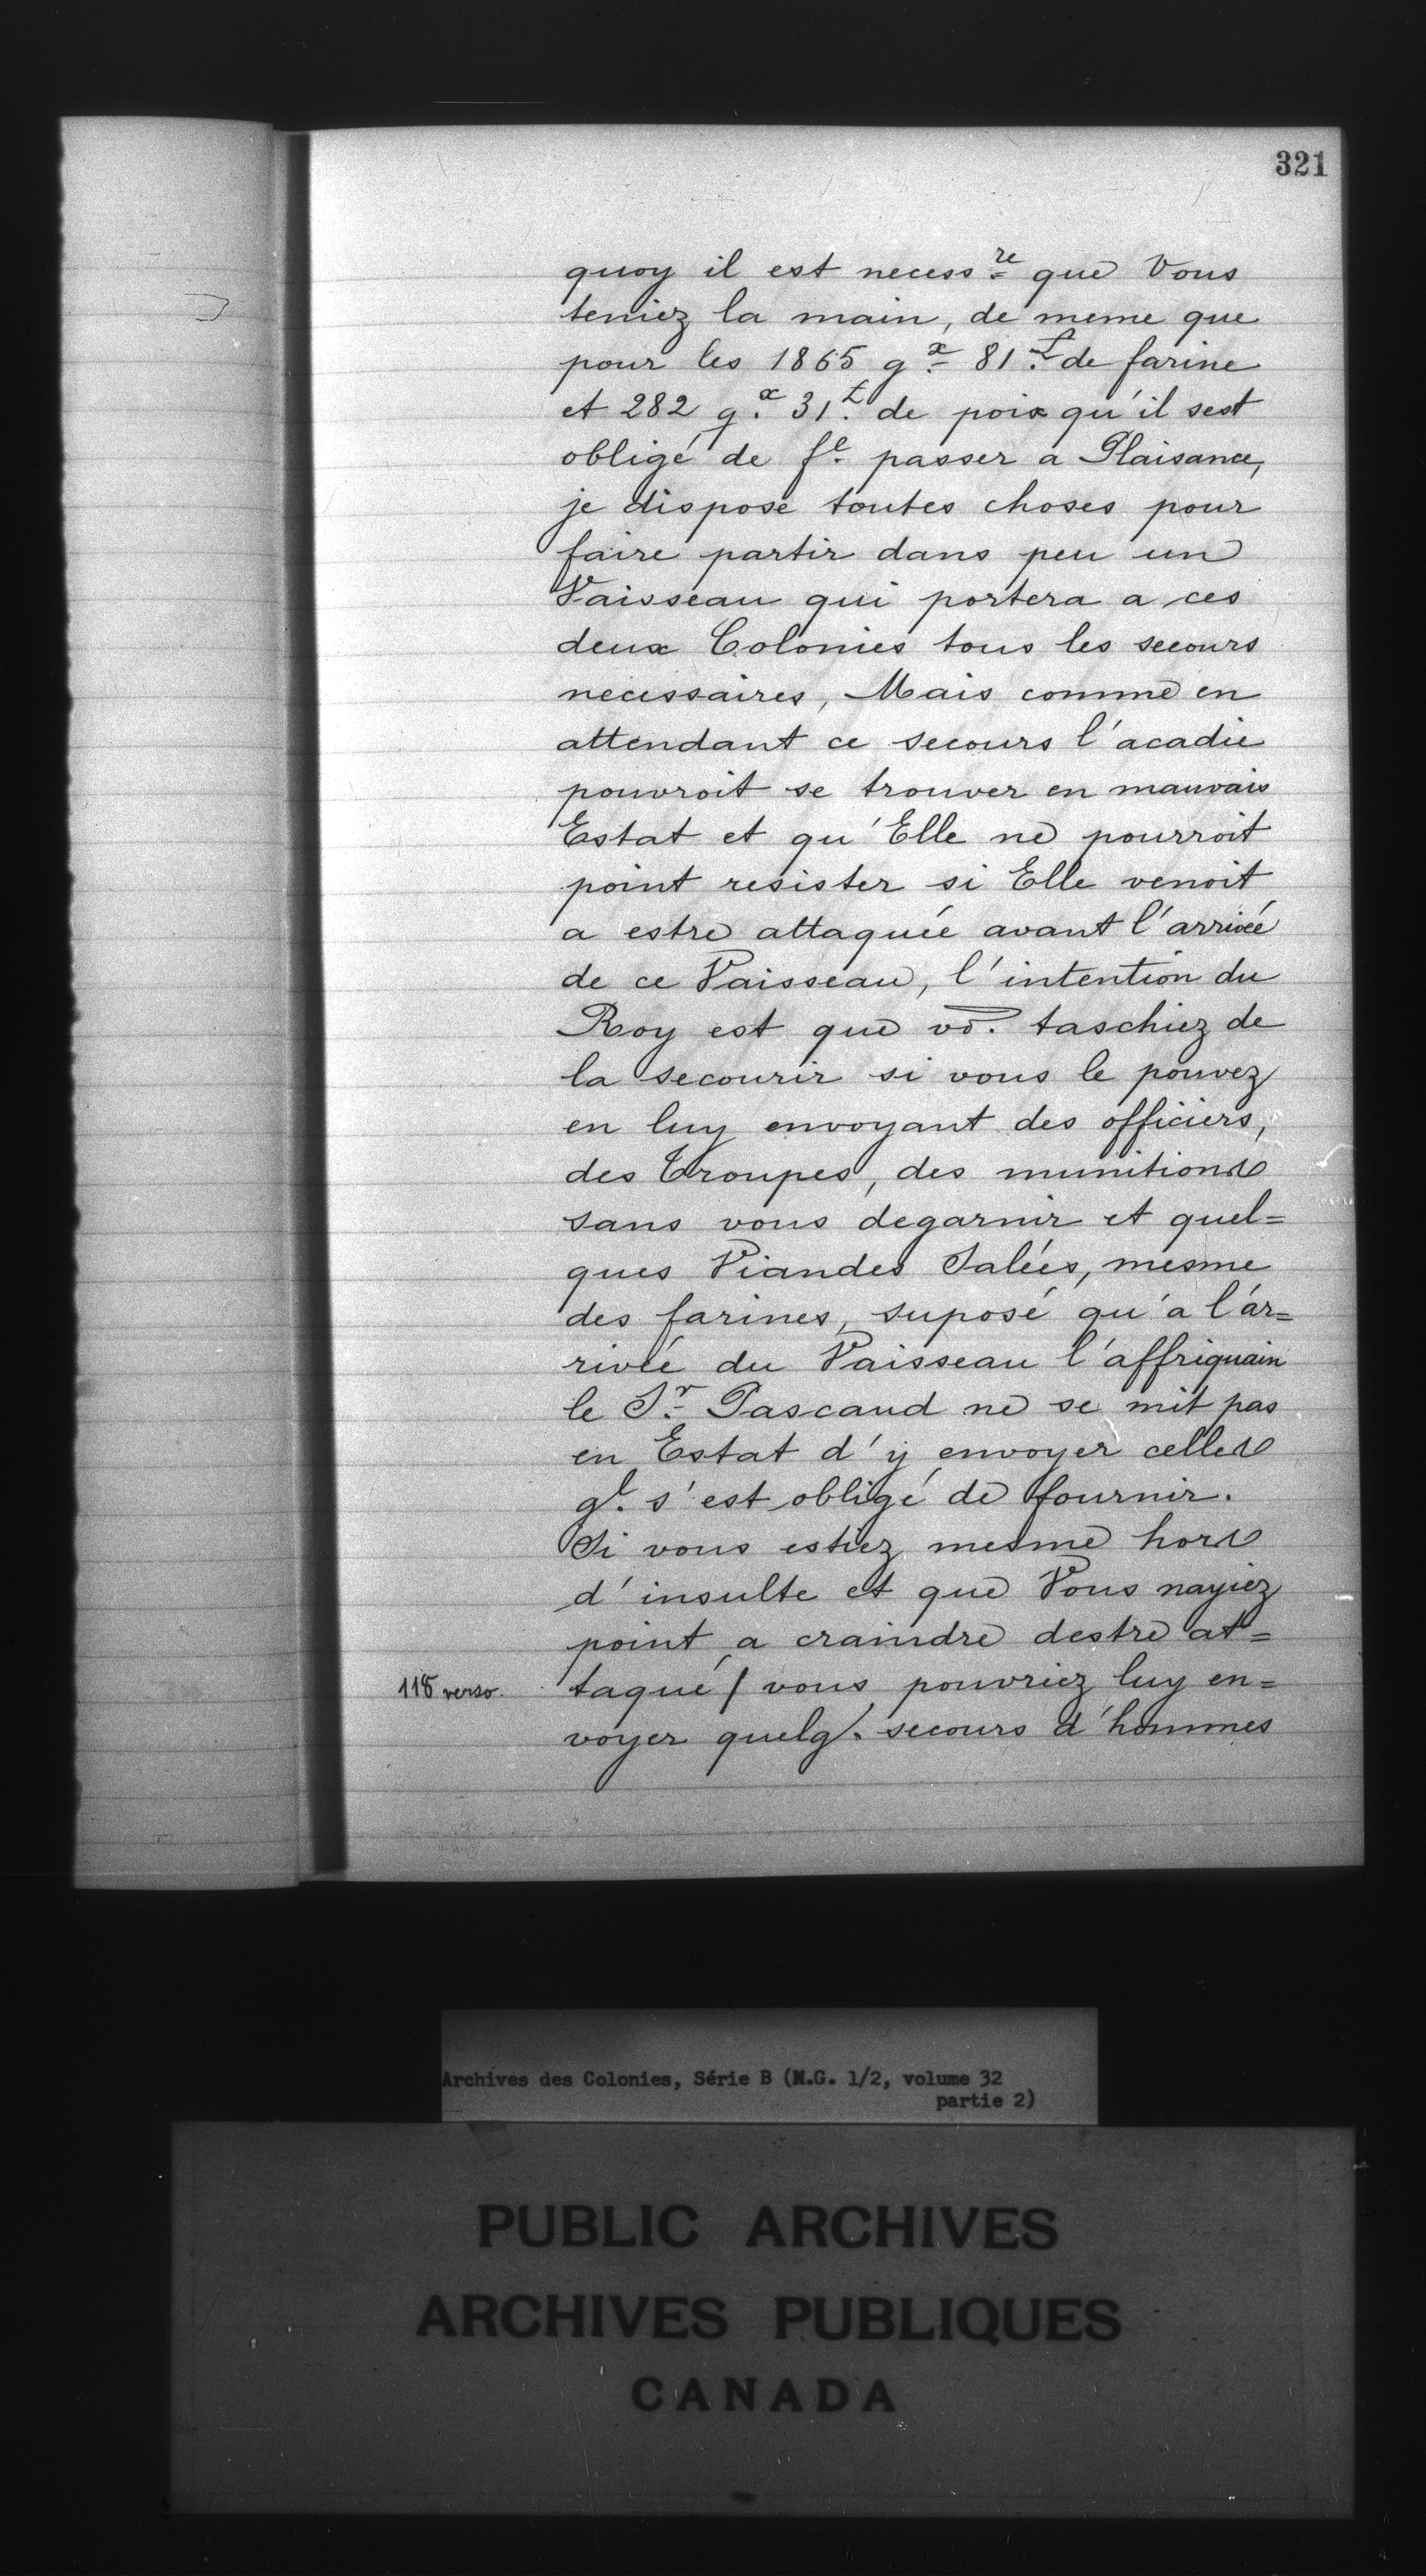 321
quoy il est necess.re que Vous
teniez la main, de meme que
pour les 1865 q.x 81.t de farine
et 282 q.x 31.t de poix qu'il sest
obligé de f.e passer a Plaisance,
je dispose toutes choses pour
faire partir dans peu un
Vaisseau qui portera a ces
deux Colonies tous les secours
necessaires, Mais comme en
attendant ce secours l'acadie
pouvroit se trouver en mauvais
Estat et qu'Elle ne pourroit
point resister si Elle venoit
a estre attaquée avant l'arrivée
de ce Vaisseau, l'intention du
Roy est que vō. taschiez de
la secourir si vous le pouvez
en luy envoyant des officiers,
des Troupes, des munitions
sans vous degarnir et quel=
ques Viandes Salées, mesme
des farines, suposé qu'a l'ar=
rivée du Vaisseau l'affriquain
le S.r Pascaud ne se mit pas
en Estat d'y envoyer celles
q.l s'est obligé de fournir.
Si vous estiez mesme hors
d'insulte et que Vous nayiez
point a craindre destre at=
118 verso. taqué / vous pouvriez luy en=
voyer quelq. secours d'hommes
Archives des Colonies, Série B (M.G. 1/2, volume 32
partie 2)
PUBLIC ARCHIVES
ARCHIVES PUBLIQUES
CANADA